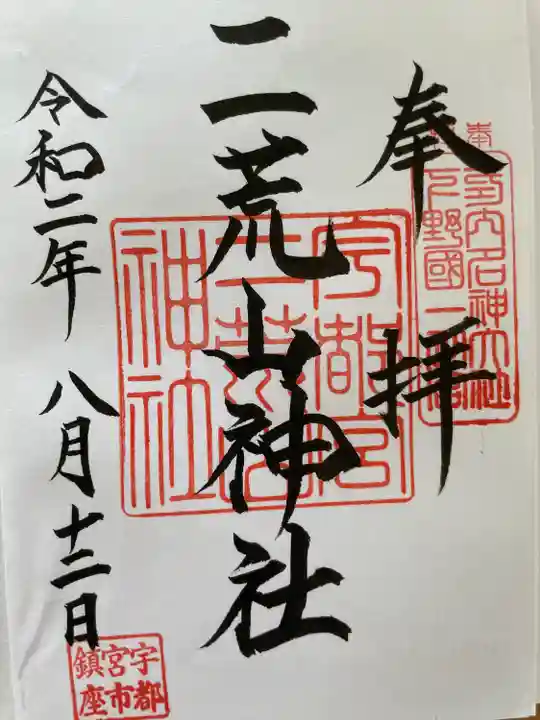 奉拝
下野國一之宮
名神大社
二荒山神社
宇都宮
二荒山
神社
令和二年八月十二日
宇都宮市鎮座